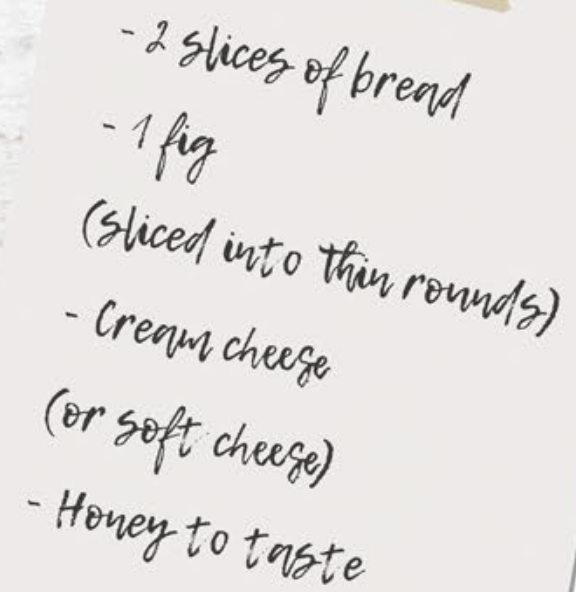 - 2 slices of bread
- 1 fig
(sliced into thin rounds)
- Cream cheese
(or soft cheese)
- Honey to taste